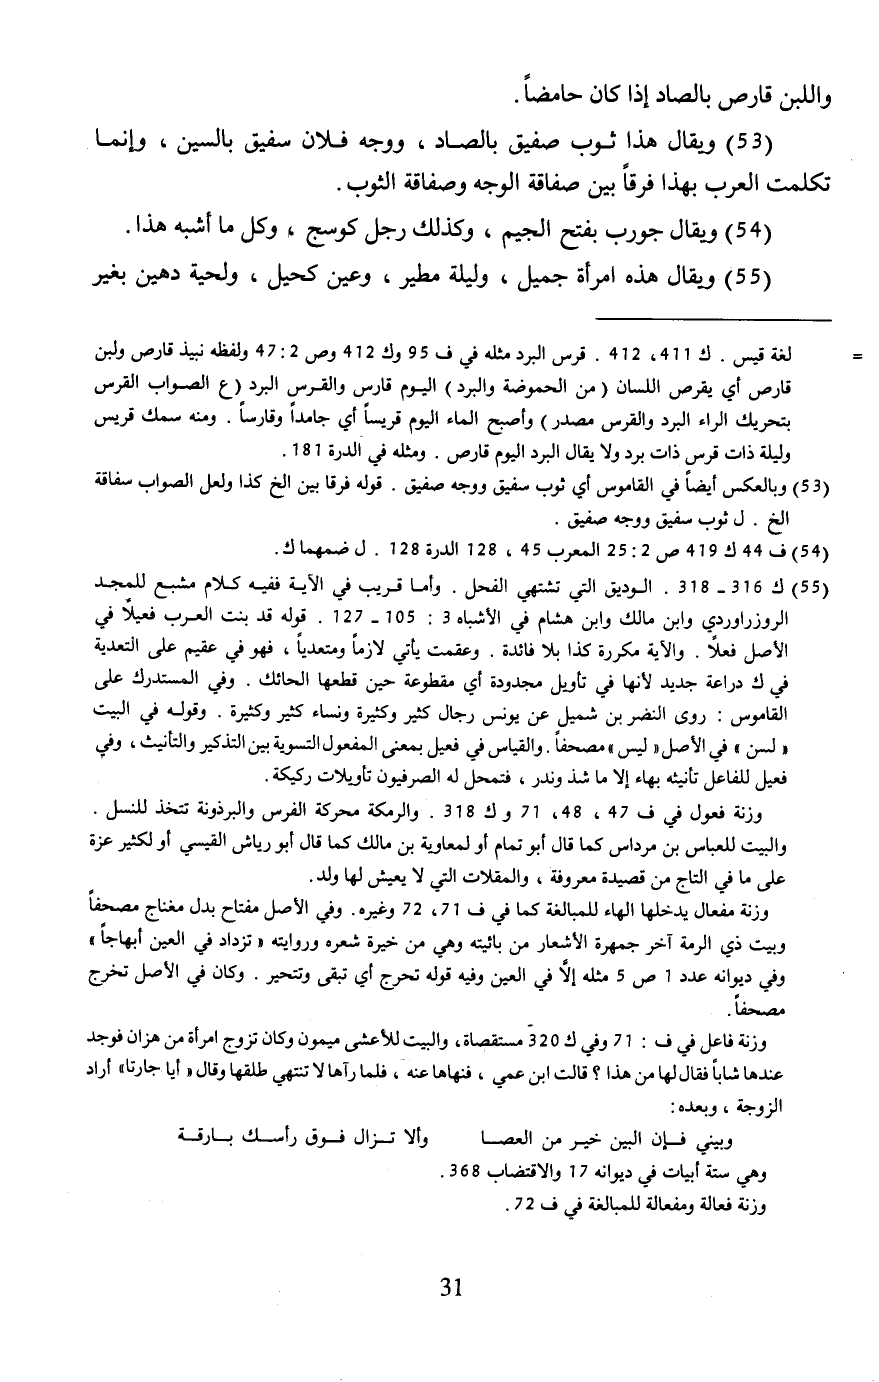 واللبن قارص بالصاد إذا كان حامضاً .
(53) ويقال هذا ثوب صفيق بالصاد ، ووجه فلان سفيق بالسين ، وإنما
تكلمت العرب بهذا فرقاً بين صفاقة الوجه وصفاقة الثوب .
(54) ويقال جورب بفتح الجيم ، وكذلك رجل كوسج ، وكل ما أشبه هذا .
(55) ويقال هذه امرأة جميل ، وليلة مطير ، وعين كحيل ، ولحية دهين بغير
= لغة قيس . ك 411، 412 . قرس البرد مثله في ف 95 وك 412 وص 2 : 47 ولفظه نبيذ قارص ولبن
قارص أي يقرص اللسان ( من الحموضة والبرد ) اليوم قارس والقرس البرد ( ع الصواب القرس
بتحريك الراء البرد والقرس مصدر ) وأصبح الماء اليوم قريساً أي جامداً وقارساً . ومنه سمك قريس
وليلة ذات قرس ذات برد ولا يقال البرد اليوم قارص . ومثله في الدرة 181 .
(53) وبالعكس أيضاً في القاموس أي ثوب سفيق ووجه صفيق . قوله فرقا بين الخ كذا ولعل الصواب سفاقة
الخ . ل ثوب سفيق ووجه صفيق .
(54) ف 44 ك 419 ص 2 : 25 المعرب 45 ، 128 الدرة 128 . ل ضمهما ك .
(55) ك 316 ـ 318 . الوديق التي تشتهي الفحل . وأما قريب في الآية ففيه كلام مشبع للمجد
الروزراوردي وابن مالك وابن هشام في الأشباه 3 : 105 ـ 127 . قوله قد بنت العرب فعيلاً في
الأصل فعلاً . والآية مكررة كذا بلا فائدة . وعقمت يأتي لازماً ومتعدياً ، فهو في عقيم على التعدية
في ك دراعة جديد لأنها في تأويل مجدودة أي مقطوعة حين قطعها الحائك . وفي المستدرك على
القاموس : روى النضر بن شميل عن يونس رجال كثير وكثيرة ونساء كثير وكثيرة . وقوله في البيت
« لسن » في الأصل « ليس » مصحفاً . والقياس في فعيل بمعنى المفعول التسوية بين التذكير والتأنيث ، وفي
فعيل للفاعل تأنيثه بهاء إلا ما شذ وندر ، فتمحل له الصرفيون تأويلات ركيكة .
وزنة فعول في ف 47 ، 48، 71 و ك 318 . والرمكة محركة الفرس والبرذونة تتخذ للنسل .
والبيت للعباس بن مرداس كما قال أبو تمام أو لمعاوية بن مالك كما قال أبو رياش القيسي أو لكثير عزة
على ما في التاج من قصيدة معروفة ، والمقلات التي لا يعيش لها ولد .
وزنة مفعال يدخلها الهاء للمبالغة كما في ف 71، 72 وغيره . وفي الأصل مفتاح بدل مغناج مصحفاً
وبيت ذي الرمة آخر جمهرة الأشعار من بائيته وهي من خيرة شعره وروايته « تزداد في العين أبهاجاً »
وفي ديوانه عدد 1 ص 5 مثله إلاَّ في العين وفيه قوله تحرج أي تبقى وتتحير . وكان في الأصل تخرج
مصحفاً .
وزنة فاعل في ف : 71 وفي ك 320 مستقصاة ، والبيت للأعشى ميمون وكان تزوج امرأة من هزان فوجد
عندها شاباً فقال لها من هذا ؟ قالت ابن عمي ، فنهاها عنه ، فلما رآها لا تنتهي طلقها وقال « أيا جارتا » أراد
الزوجة ، وبعده :
وبيني فإن البين خير من العصا وألا تزال فوق رأسك بارقة
وهي ستة أبيات في ديوانه 17 والاقتضاب 368 .
وزنة فعالة ومفعالة للمبالغة في ف 72 .
31